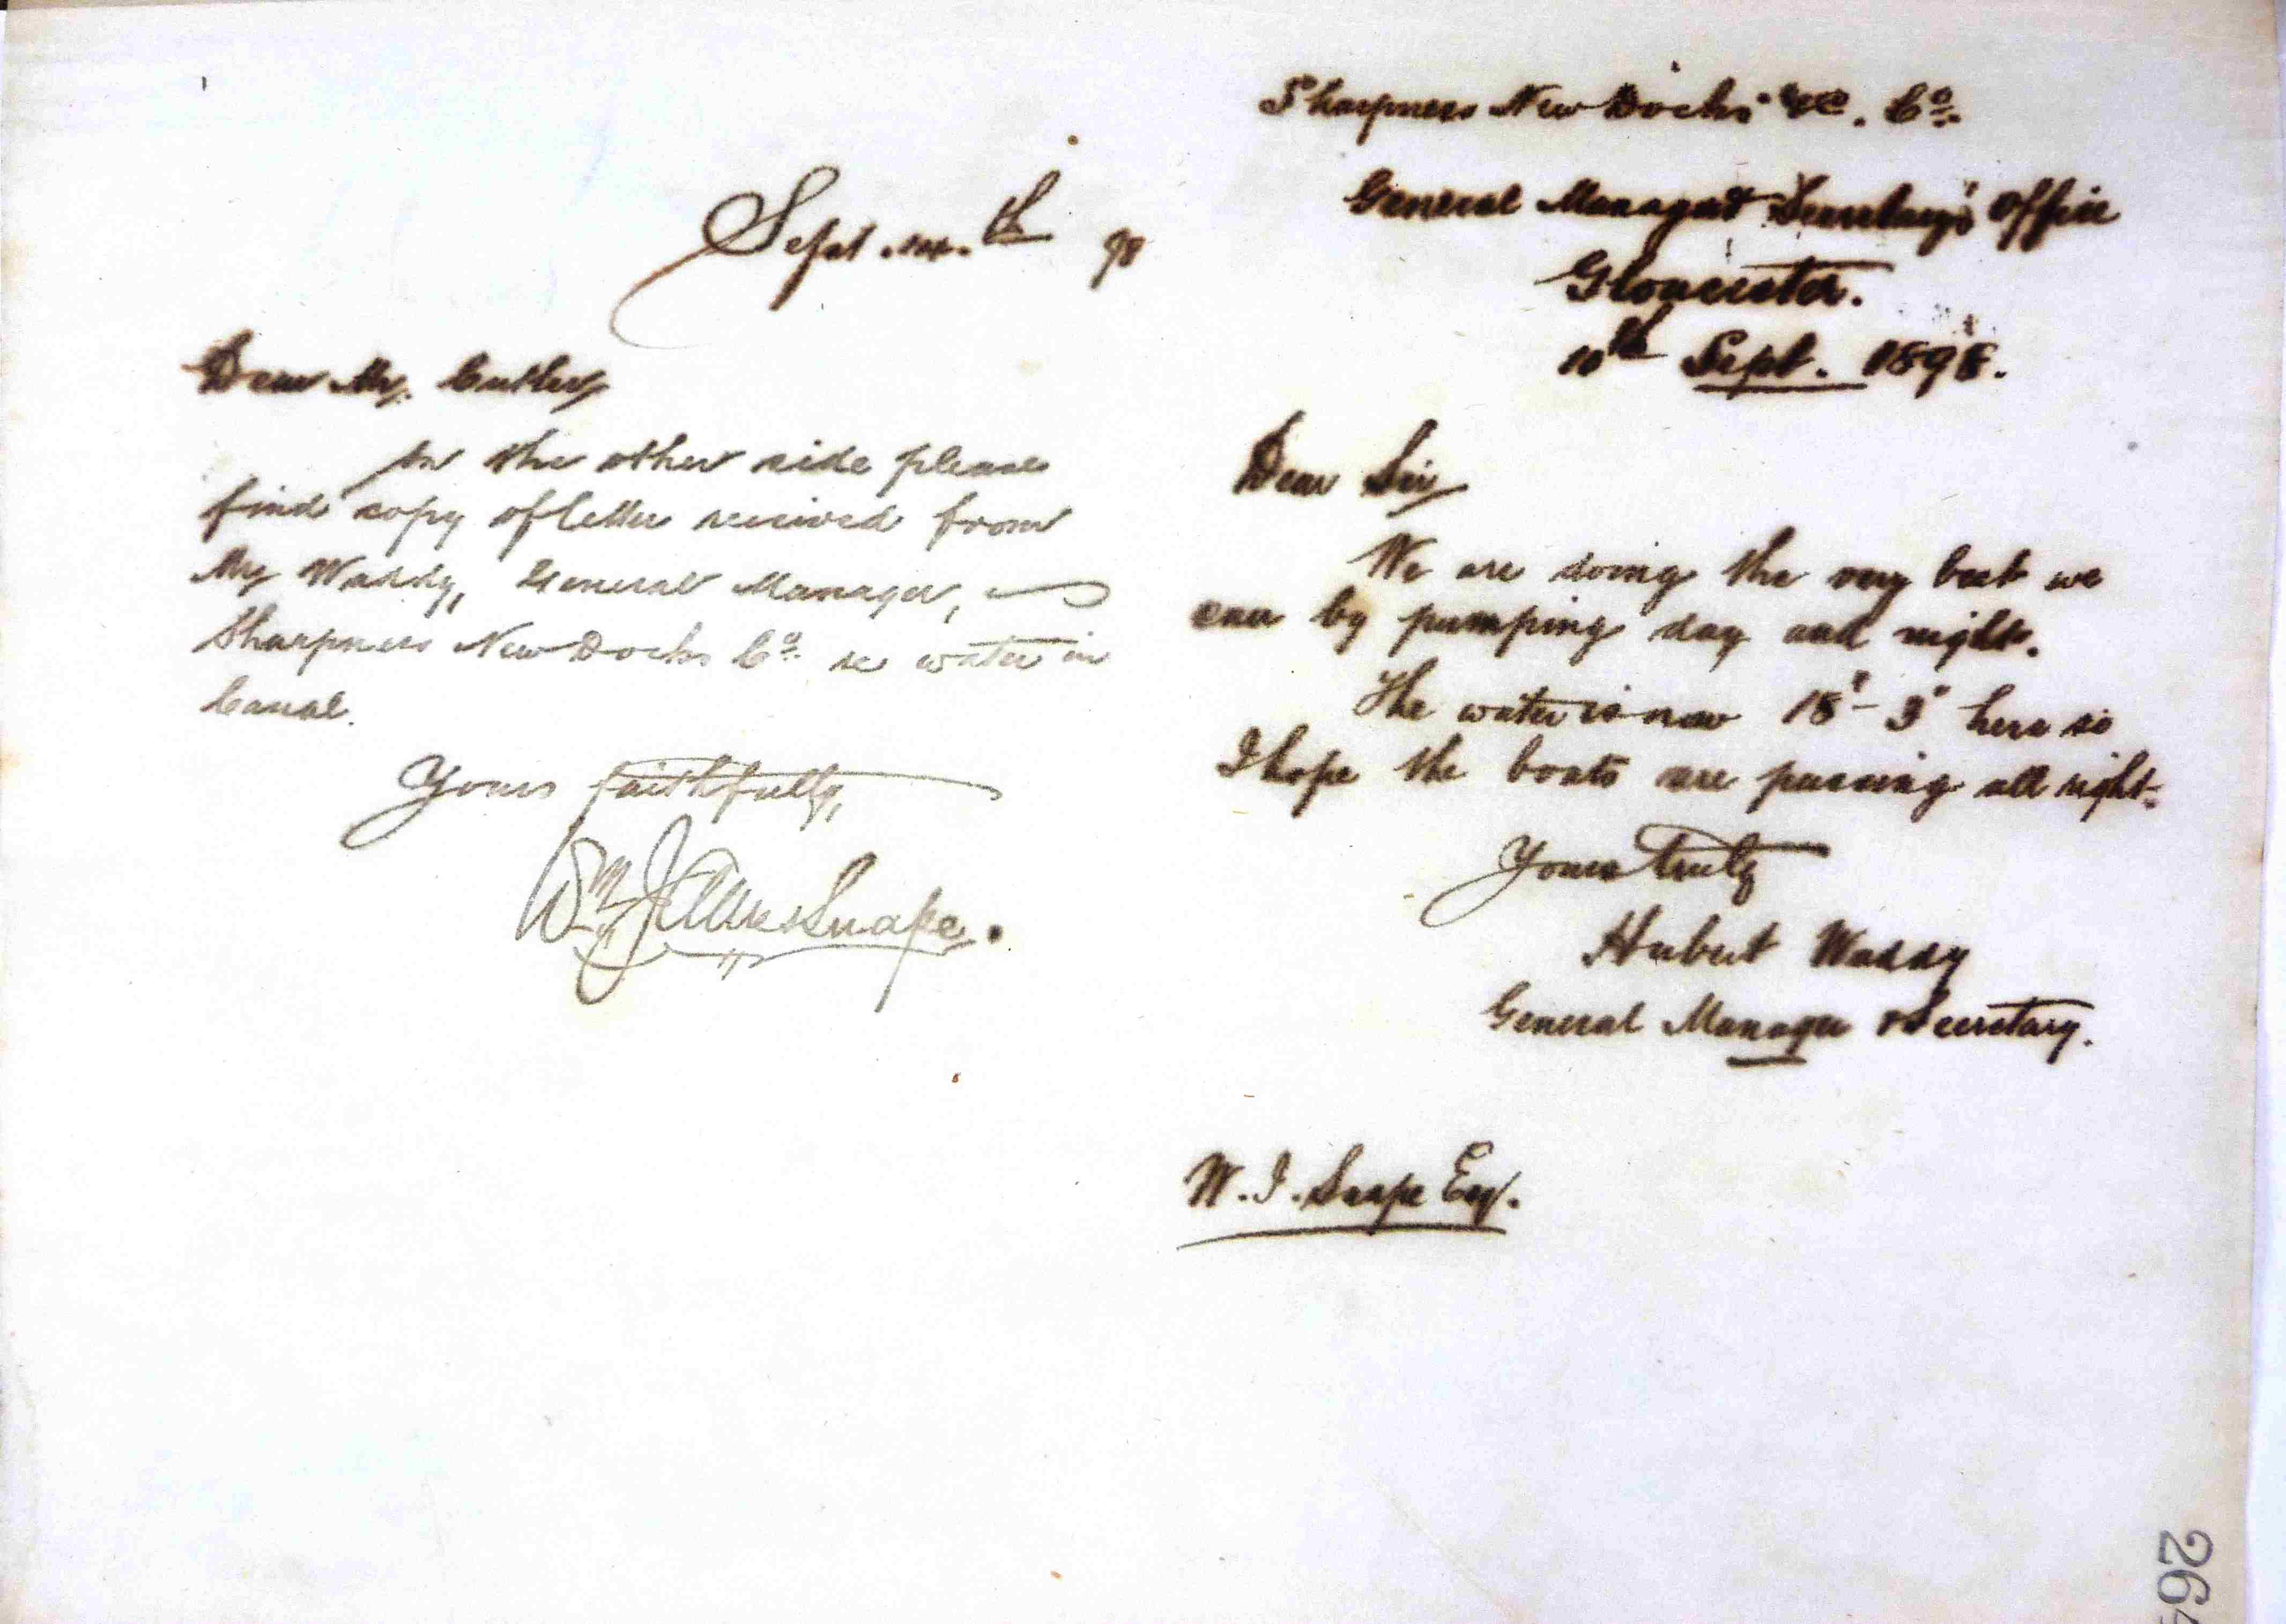 Sept. 14th 98
Dear Mr. Cutler,
On the other side please
find copy of letter received from
Mr Waddy, General Manager,
Sharpness New Docks Co. re water in
Canal.
Yours faithfully,
Wm J Snape.
Sharpness New Docks &c. Co.
General Manager & Secretary's Office
Gloucester.
10th Sept. 1898.
Dear Sir,
We are doing the very best we
can by pumping day and night.
The water is now 18' - 3" here so
I hope the boats are passing all right.
Yours truly
Hubert Waddy
General Manager & Secretary.
W. J. Snape Esq.
264